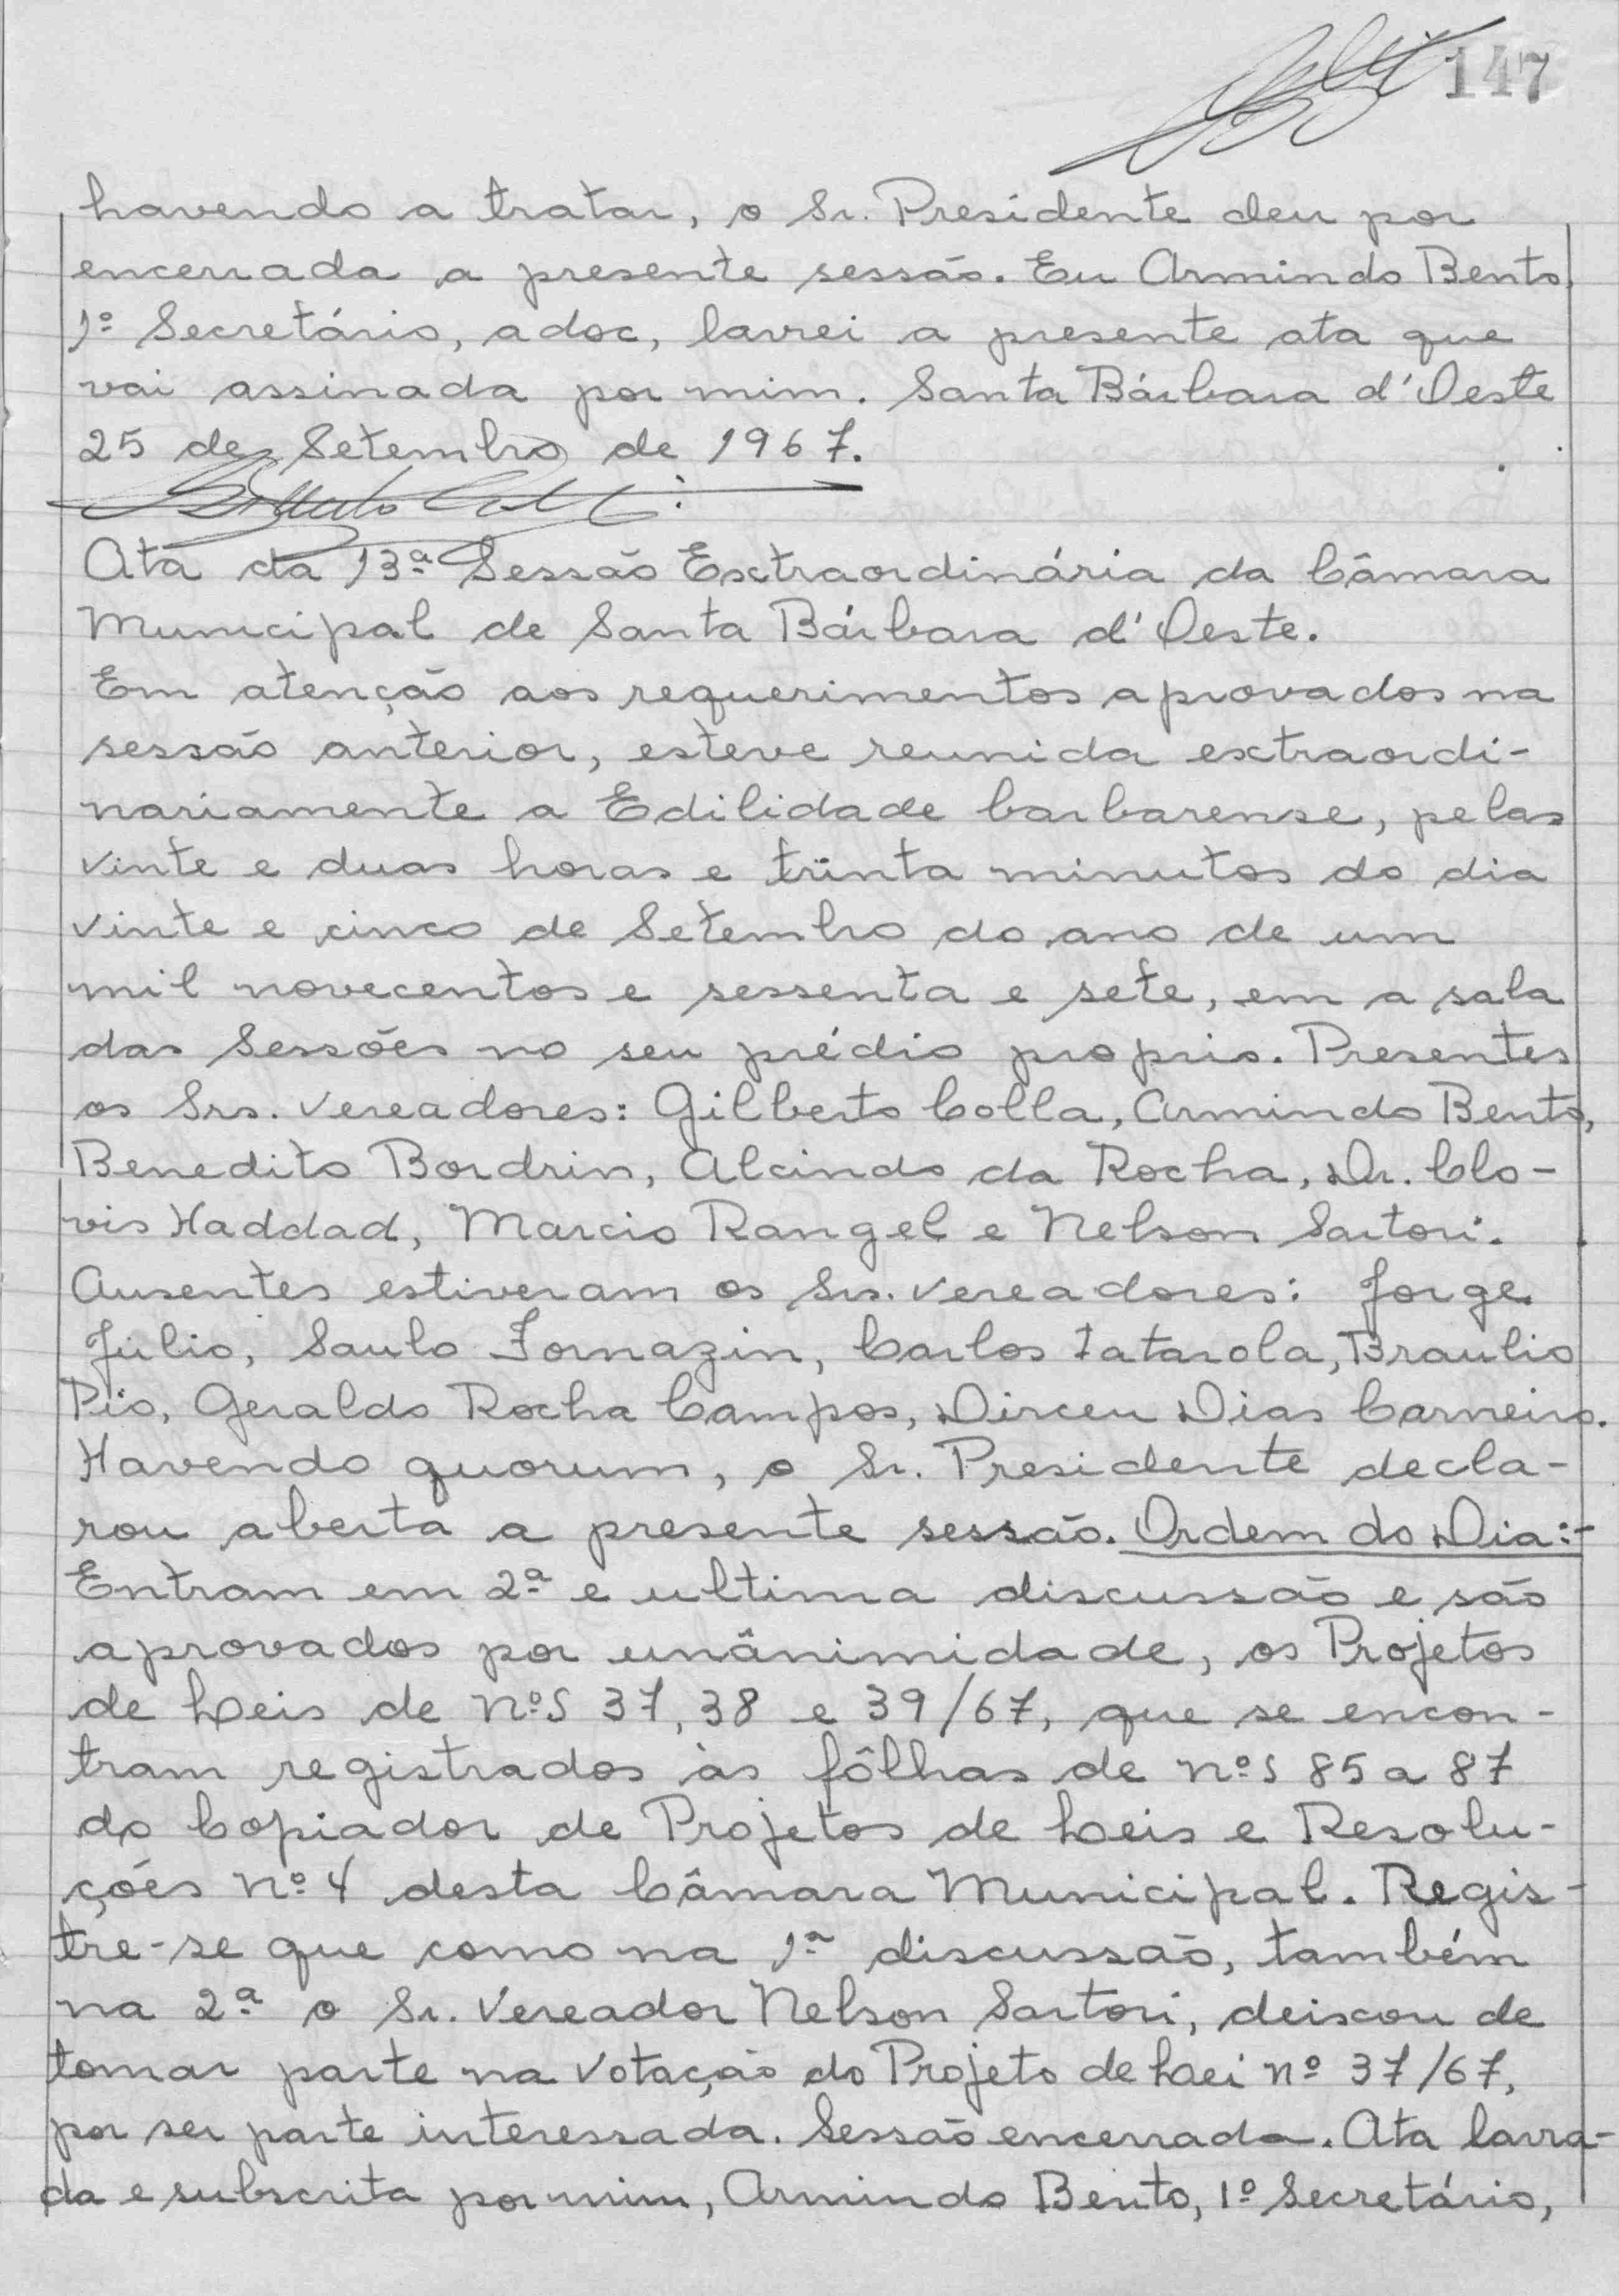 147
havendo a tratar, o Sr. Presidente deu por
encerrada a presente sessão. Eu Armindo Bento,
1º Secretário, adoc, lavrei a presente ata que
vai assinada por mim. Santa Bárbara d'Oeste
25 de Setembro de 1967.
Ata da 13ª Sessão Extraordinária da Câmara
Municipal de Santa Bárbara d'Oeste.
Em atenção aos requerimentos aprovados na
sessão anterior, esteve reunida extraordi-
nariamente a Edilidade barbarense, pelas
vinte e duas horas e trinta minutos do dia
vinte e cinco de Setembro do ano de um
mil novecentos e sessenta e sete, em a sala
das Sessões no seu prédio proprio. Presentes
os Srs. Vereadores: Gilberto Colla, Armindo Bento,
Benedito Bordrin, Alcindo da Rocha, Dr. Clo-
vis Haddad, Marcio Rangel e Nelson Sartori.
Ausentes estiveram os Srs. Vereadores: Jorge
Júlio, Saulo Fornazin, Carlos Fatarola, Braulio
Pio, Geraldo Rocha Campos, Dirceu Dias Carneiro.
Havendo quorum, o Sr. Presidente decla-
rou aberta a presente sessão. Ordem do Dia:-
Entram em 2ª e ultima discussão e são
aprovados por unânimidade, os Projetos
de Leis de nºs 37, 38 e 39/67, que se encon-
tram registrados às fôlhas de nºs 85 a 87
do Copiador de Projetos de Leis e Resolu-
ções nº 4 desta Câmara Municipal. Regis-
tre-se que como na 1ª discussão, também
na 2ª o Sr. Vereador Nelson Sartori, deixou de
tomar parte na votação do Projeto de Lei nº 37/67,
por ser parte interessada. Sessão encerrada. Ata lavra-
da e subscrita por mim, Armindo Bento, 1º Secretário,